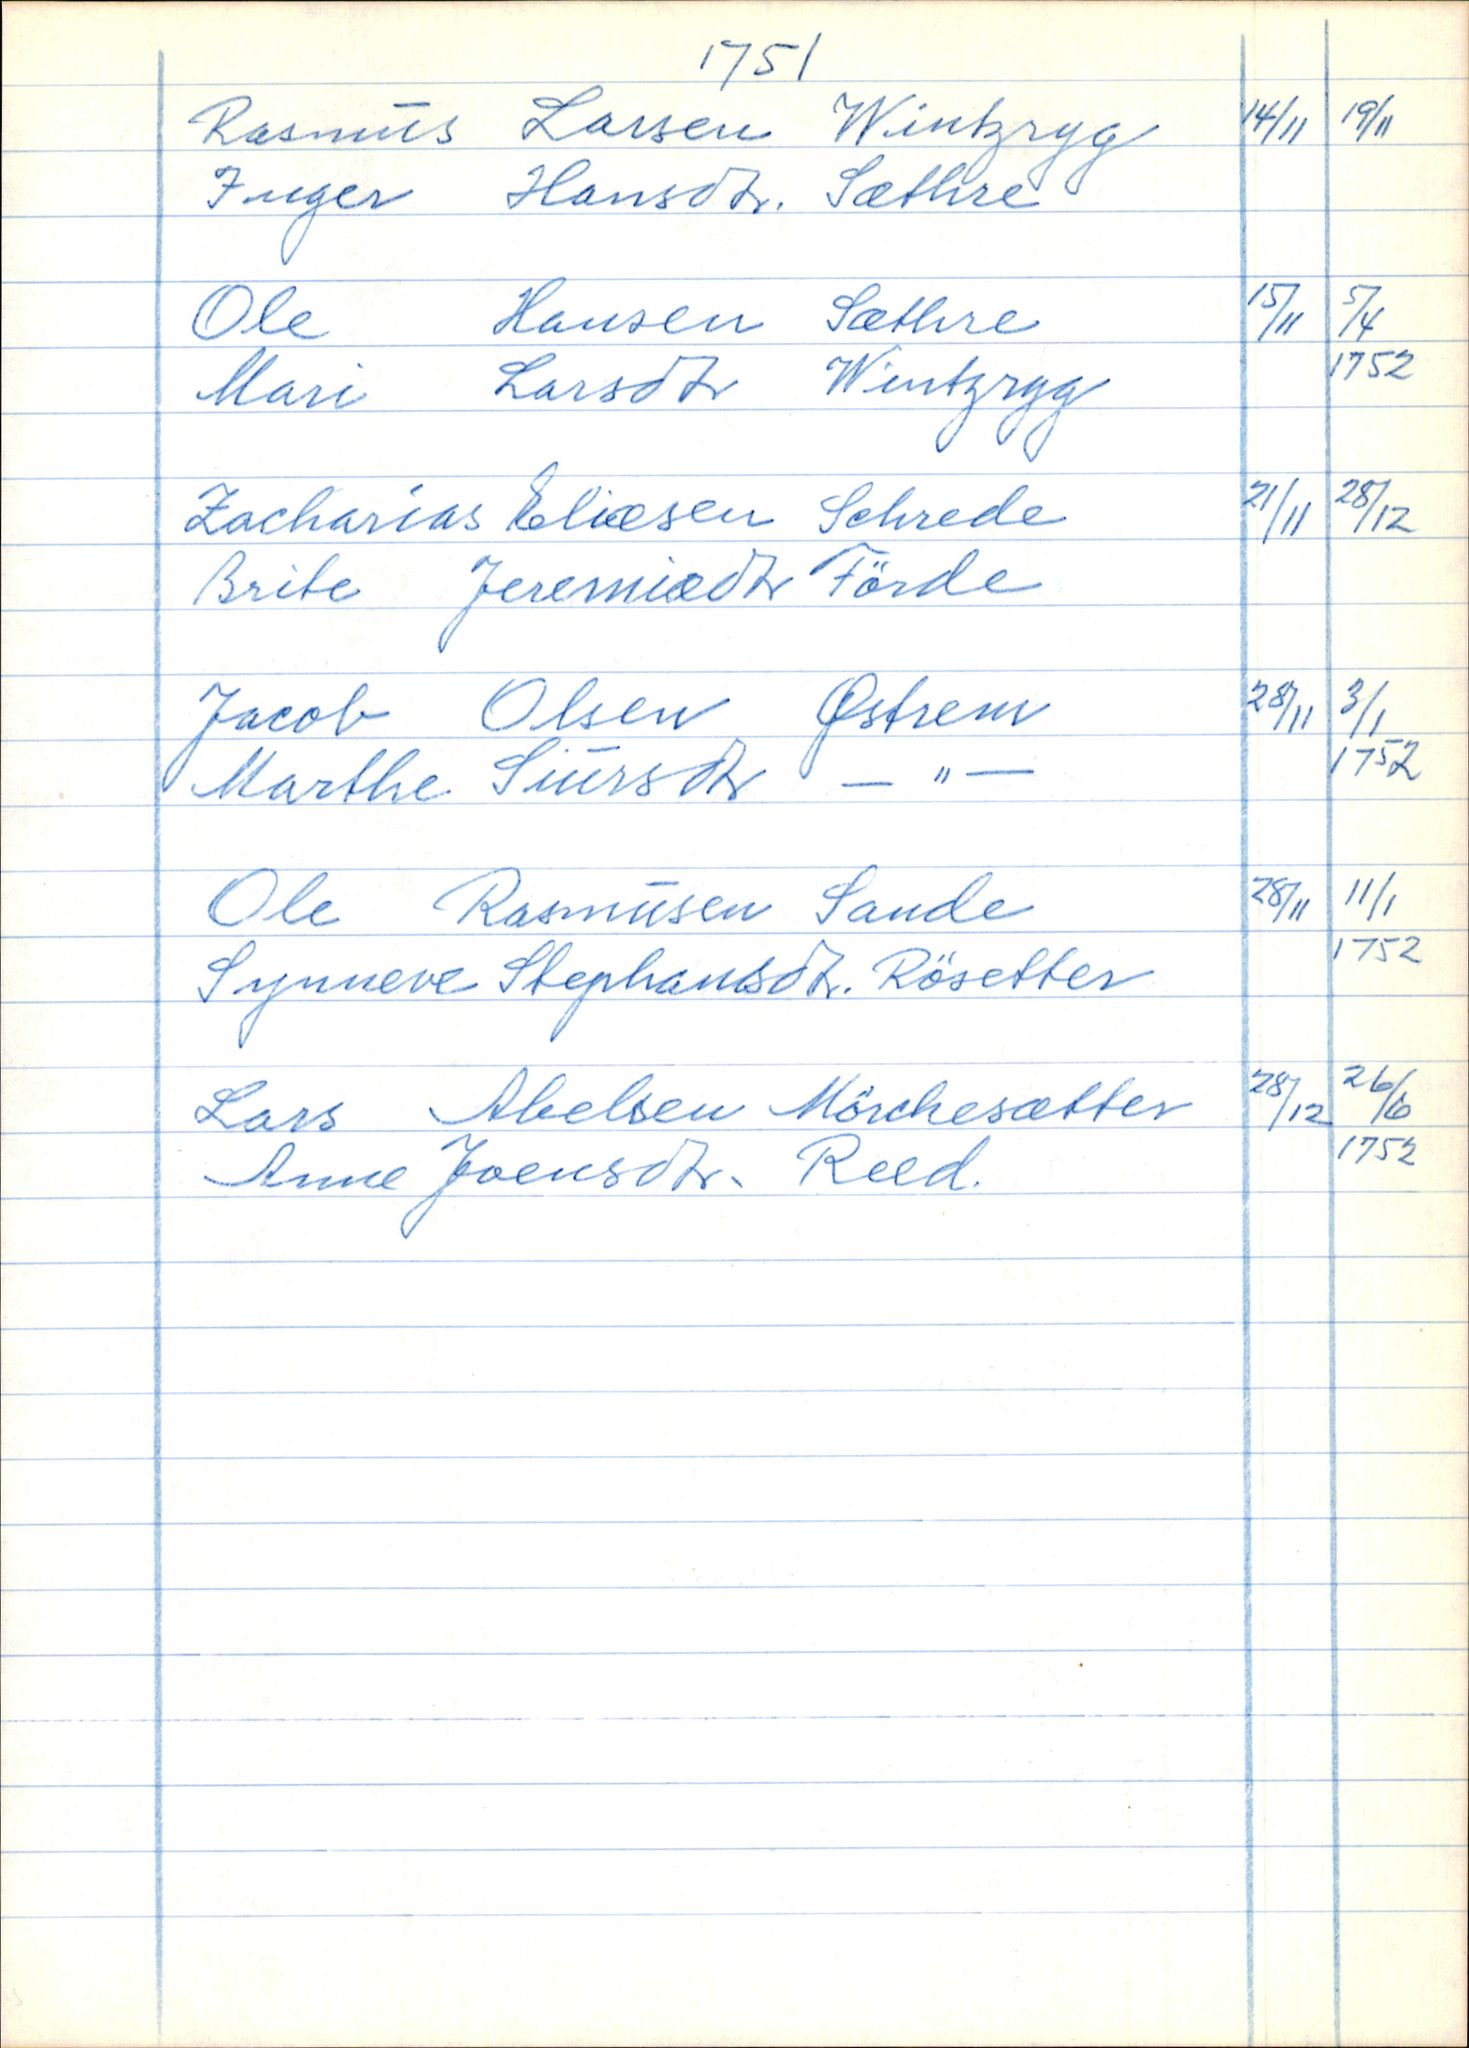 1751
Rasmus Larsen Wintzryg 14/11 19/11
Inger Hansdtr. Sæthre
Ole Hansen Sæthre 15/11 5/4
Mari Larsdtr Wintzryg 1752
Zacharias Eliæsen Schrede 21/11 28/12
Brite Jeremiædtr Förde
Jacob Olsen Østrem 28/11 3/1
Marthe Siursdtr — " — 1752
Ole Rasmusen Sande 28/11 11/1
Synneve Stephansdtr. Rösetter 1752
Lars Abelsen Mörchesætter 28/12 26/6
Anne Joensdtr. Reed. 1752